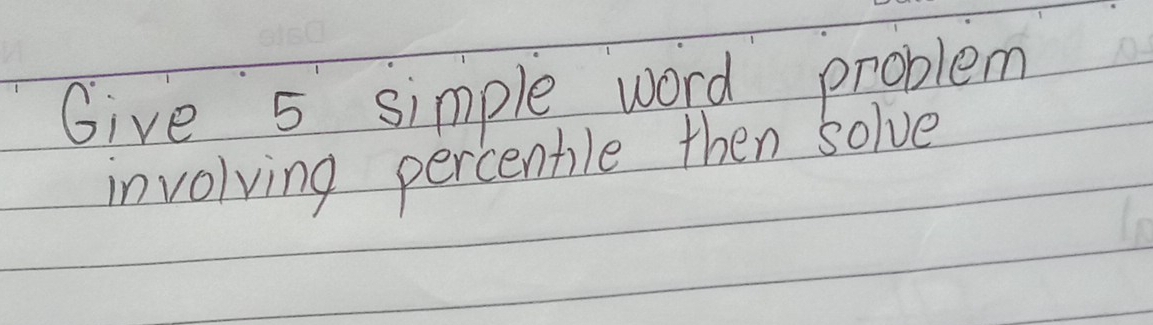 Give 5 simple word problem
involving percentile then solve